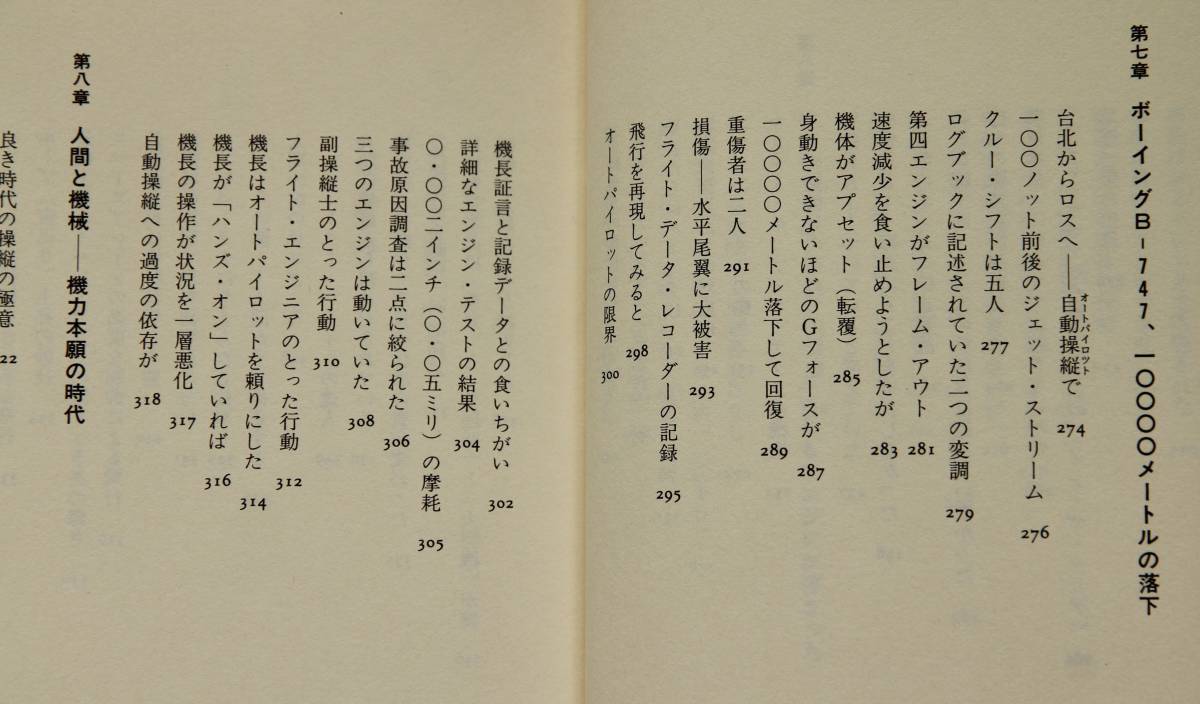 第七章 ボーイングB-747、一〇〇〇〇メートルの落下
台北からロスへ——自動操縦で 274
オートパイロット
一〇〇ノット前後のジェット・ストリーム 276
クルー・シフトは五人 277
ログブックに記述されていた二つの変調 279
第四エンジンがフレーム・アウト 281
速度減少を食い止めようとしたが 283
機体がアプセット（転覆） 285
身動きできないほどのGフォースが 287
一〇〇〇〇メートル落下して回復 289
重傷者は二人 291
損傷——水平尾翼に大被害 293
フライト・データ・レコーダーの記録 295
飛行を再現してみると 298
オートパイロットの限界 300
機長証言と記録データとの食いちがい 302
詳細なエンジン・テストの結果 304
〇・〇〇二インチ（〇・〇五ミリ）の摩耗 305
事故原因調査は二点に絞られた 306
三つのエンジンは動いていた 308
副操縦士のとった行動 310
フライト・エンジニアのとった行動 312
機長はオートパイロットを頼りにした 314
機長が「ハンズ・オン」していれば 316
機長の操作が状況を一層悪化 317
自動操縦への過度の依存が 318
第八章 人間と機械——機力本願の時代
良き時代の操縦の極意 22